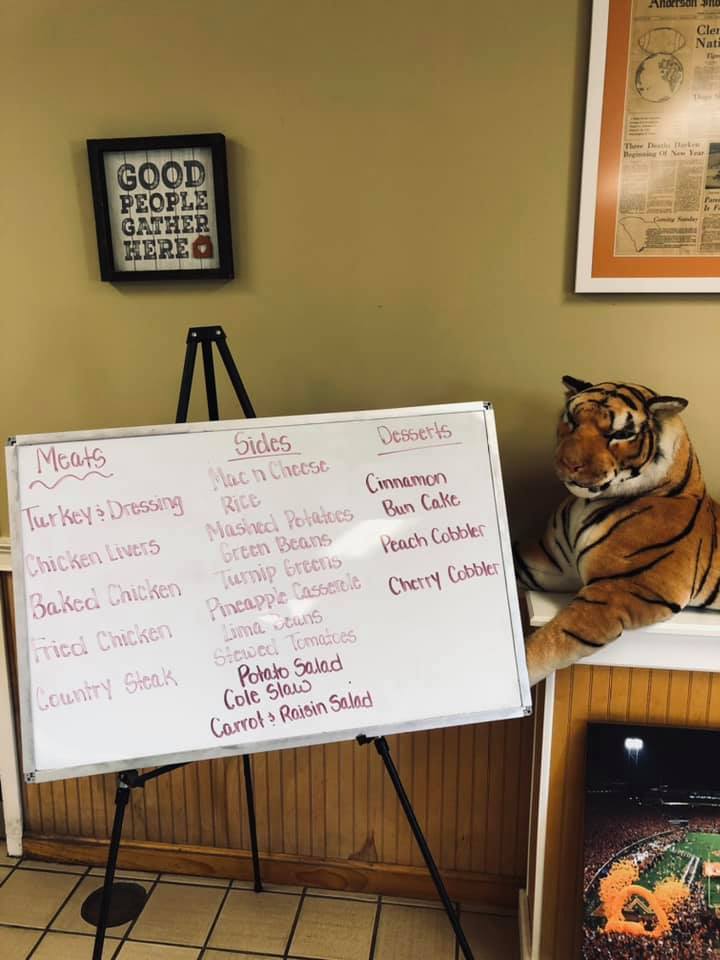 GOOD
PEOPLE
GATHER
HERE
Anderson
Three Deaths Darken
Beginning Of New Year
Coming Sunday
Meats
Turkey & Dressing
Chicken Livers
Baked Chicken
Fried Chicken
Country Steak
Sides
Mac n Cheese
Rice
Mashed Potatoes
Green Beans
Turnip Greens
Pineapple Casserole
Lima Beans
Stewed Tomatoes
Potato Salad
Cole Slaw
Carrot & Raisin Salad
Desserts
Cinnamon
Bun Cake
Peach Cobbler
Cherry Cobbler